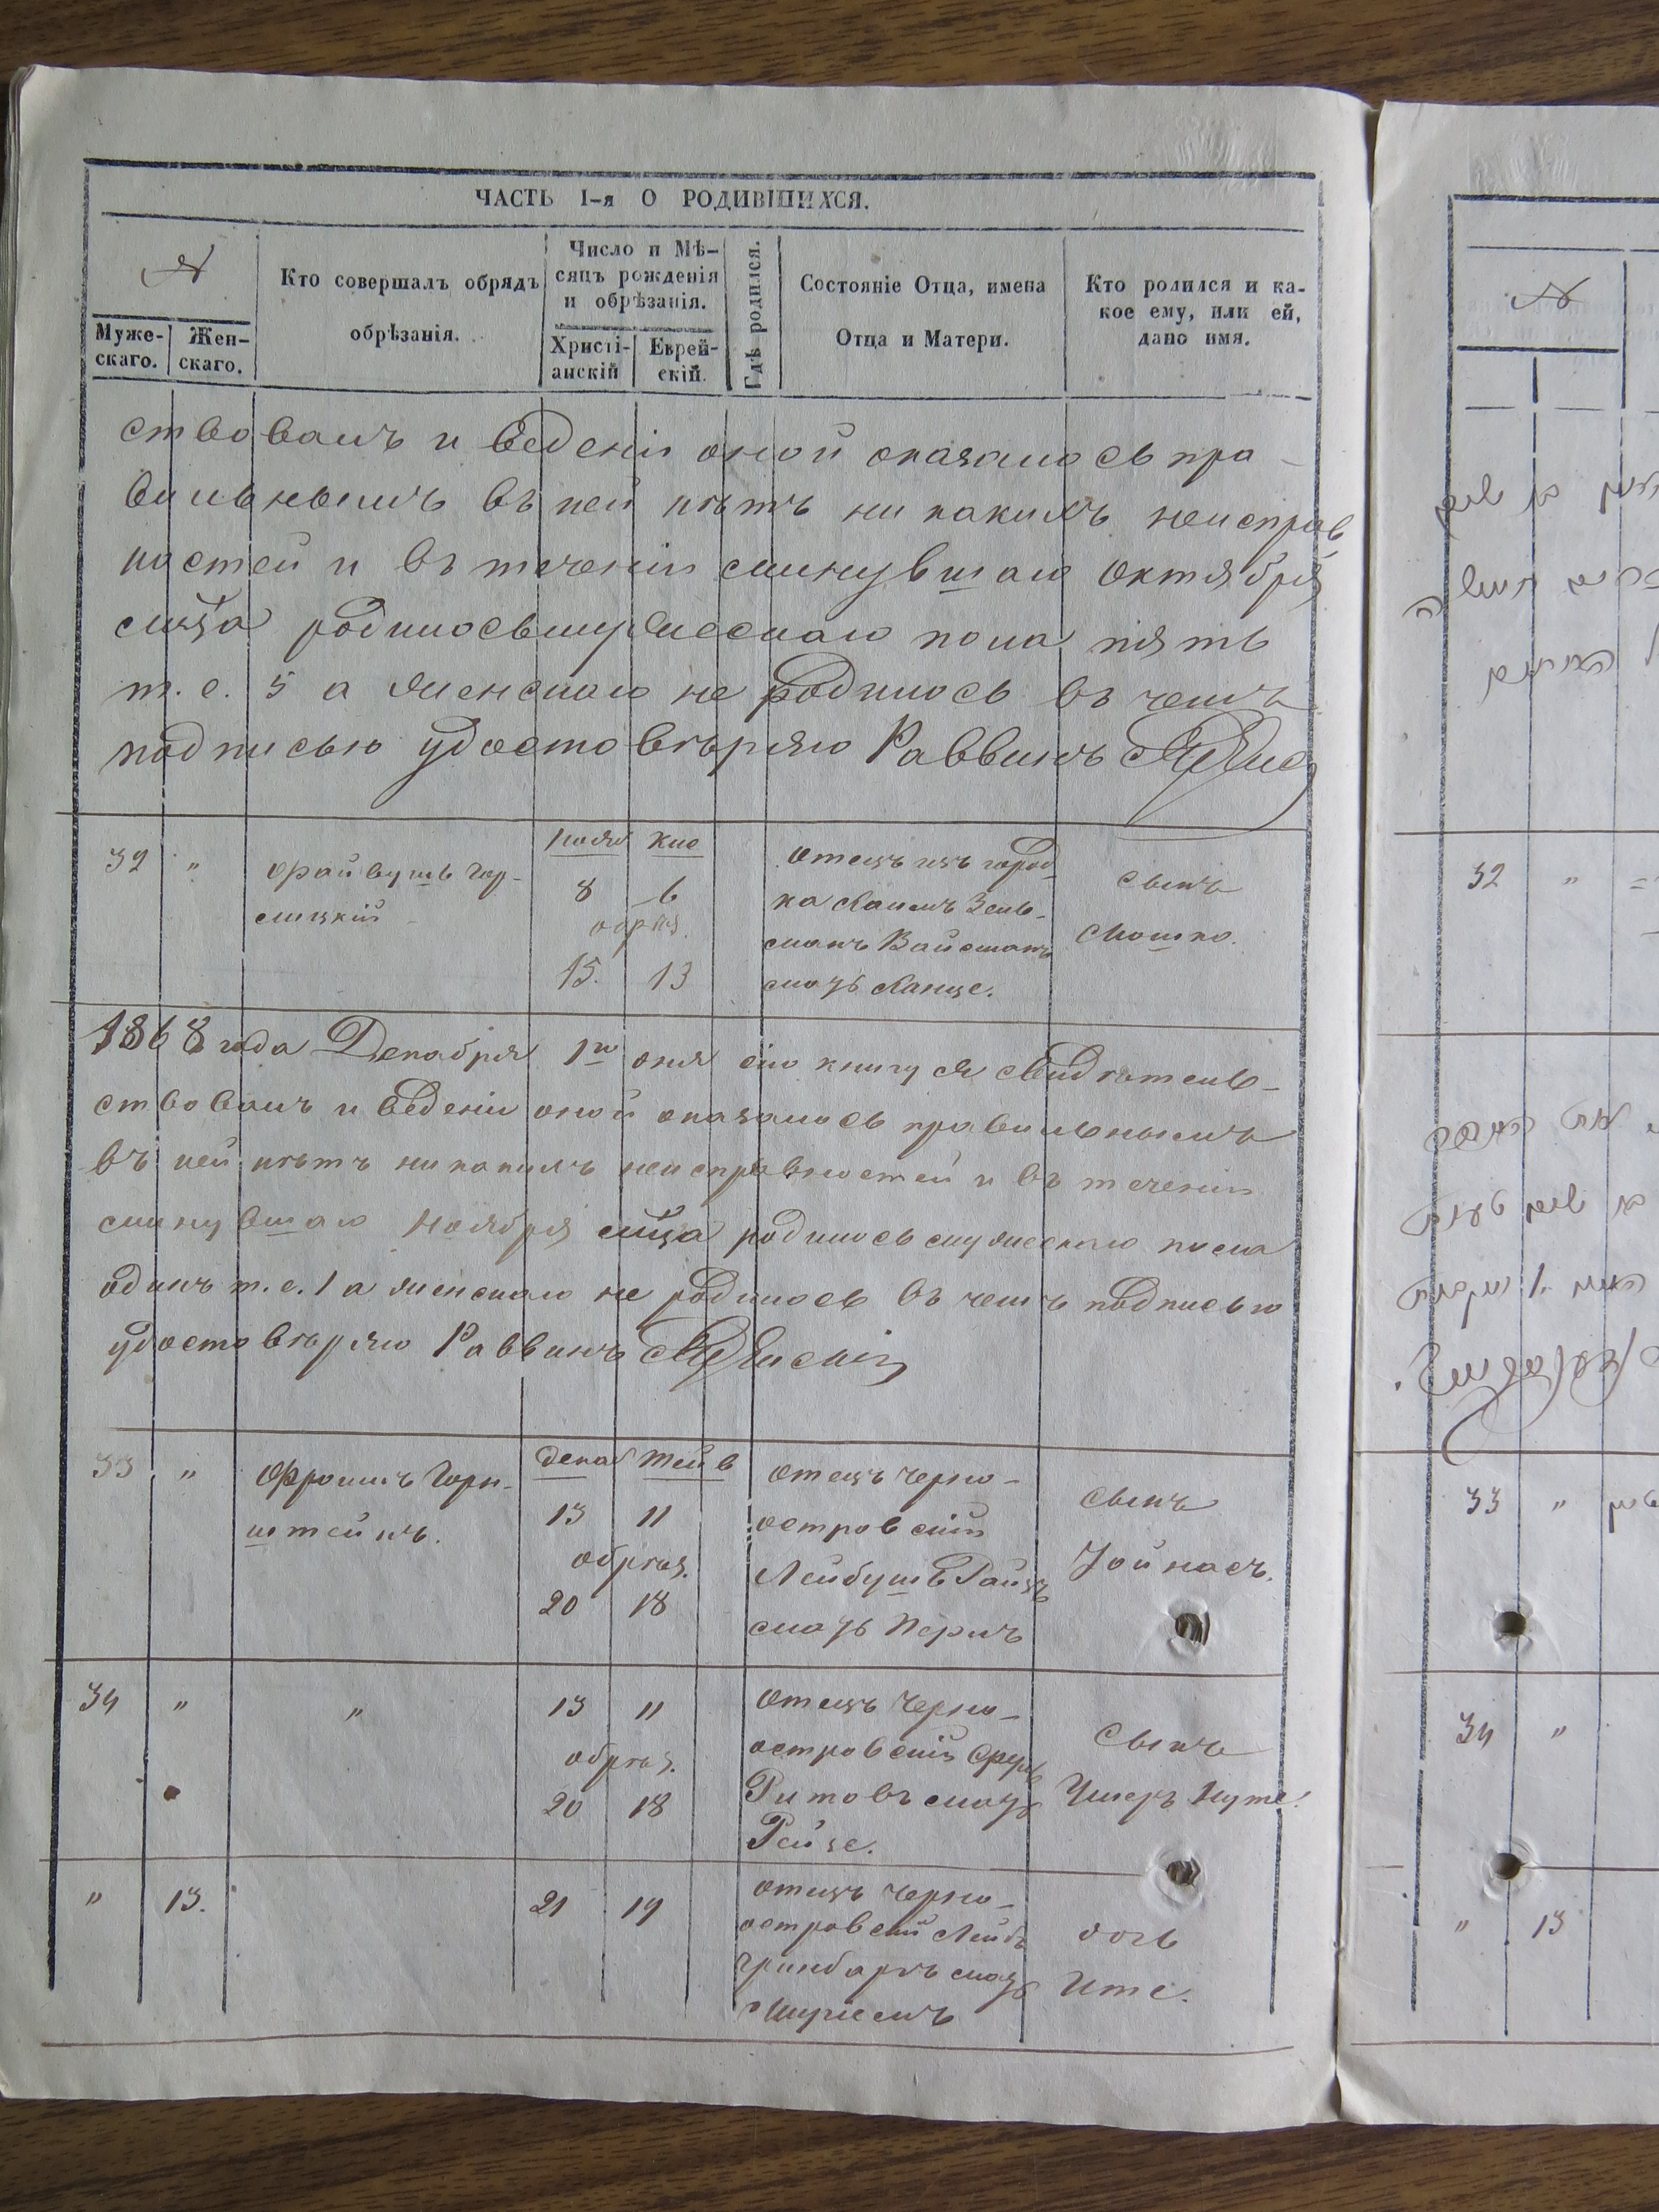 ЧАСТЬ I-я О РОДИВШИХСЯ.
№
Муже-
скаго.
Жен-
скаго.
Кто совершалъ обрядъ
обрѣзанія.
Число и Мѣ-
сяцъ рожденія
и обрѣзанія.
Христі-
анскій
Еврей-
скій.
Гдѣ родился.
Состояніе Отца, имена
Отца и Матери.
Кто родился и ка-
кое ему, или ей,
дано имя.
ствовалъ и ведени оной оказалось пра-
вильнымъ въ ней нѣтъ ни какихъ неисправ
ностей и въ теченіи минувшаго октября
мца родилось мужескаго пола пять
т. е. 5 а женскаго не родилось въ чемъ
подписью удостовѣряю Раввинъ
32 "
Файвушъ Гор-
лицкій
нояб Кис
8 6
обрѣз.
15. 13
отецъ изъ город
ка Зель-
манъ Вайсманъ
мать Ханце.
сынъ
Мошко.
1868 года Декабря 1го дня сію книгу я свидѣтель-
ствовалъ и ведени оной оказалось правильнымъ
въ ней нѣтъ никакихъ неисправностей и въ теченіи
минувшаго Ноября мца родилось мужескаго пола
одинъ т. е. 1 а женскаго не родилось въ чемъ подписью
удостовѣряю Раввинъ
33 "
Фроимъ Горн-
штейнъ.
Декаб Тейв
13 11
обрѣз.
20 18
отецъ черно-
островскій
Лейбушъ Райзъ
мать Перль
сынъ
Йойнасъ.
34 " "
13 11
обрѣз.
20 18
отецъ Черно-
островскій Сруль
Ритовъ мать
Рейзе.
сынъ
Имеръ Нуте.
" 13.
21 19
отецъ черно-
островскій Лейбъ
Гринбаръ мать
дочь
Ите.
№
32 "
33 "
34 "
" 13